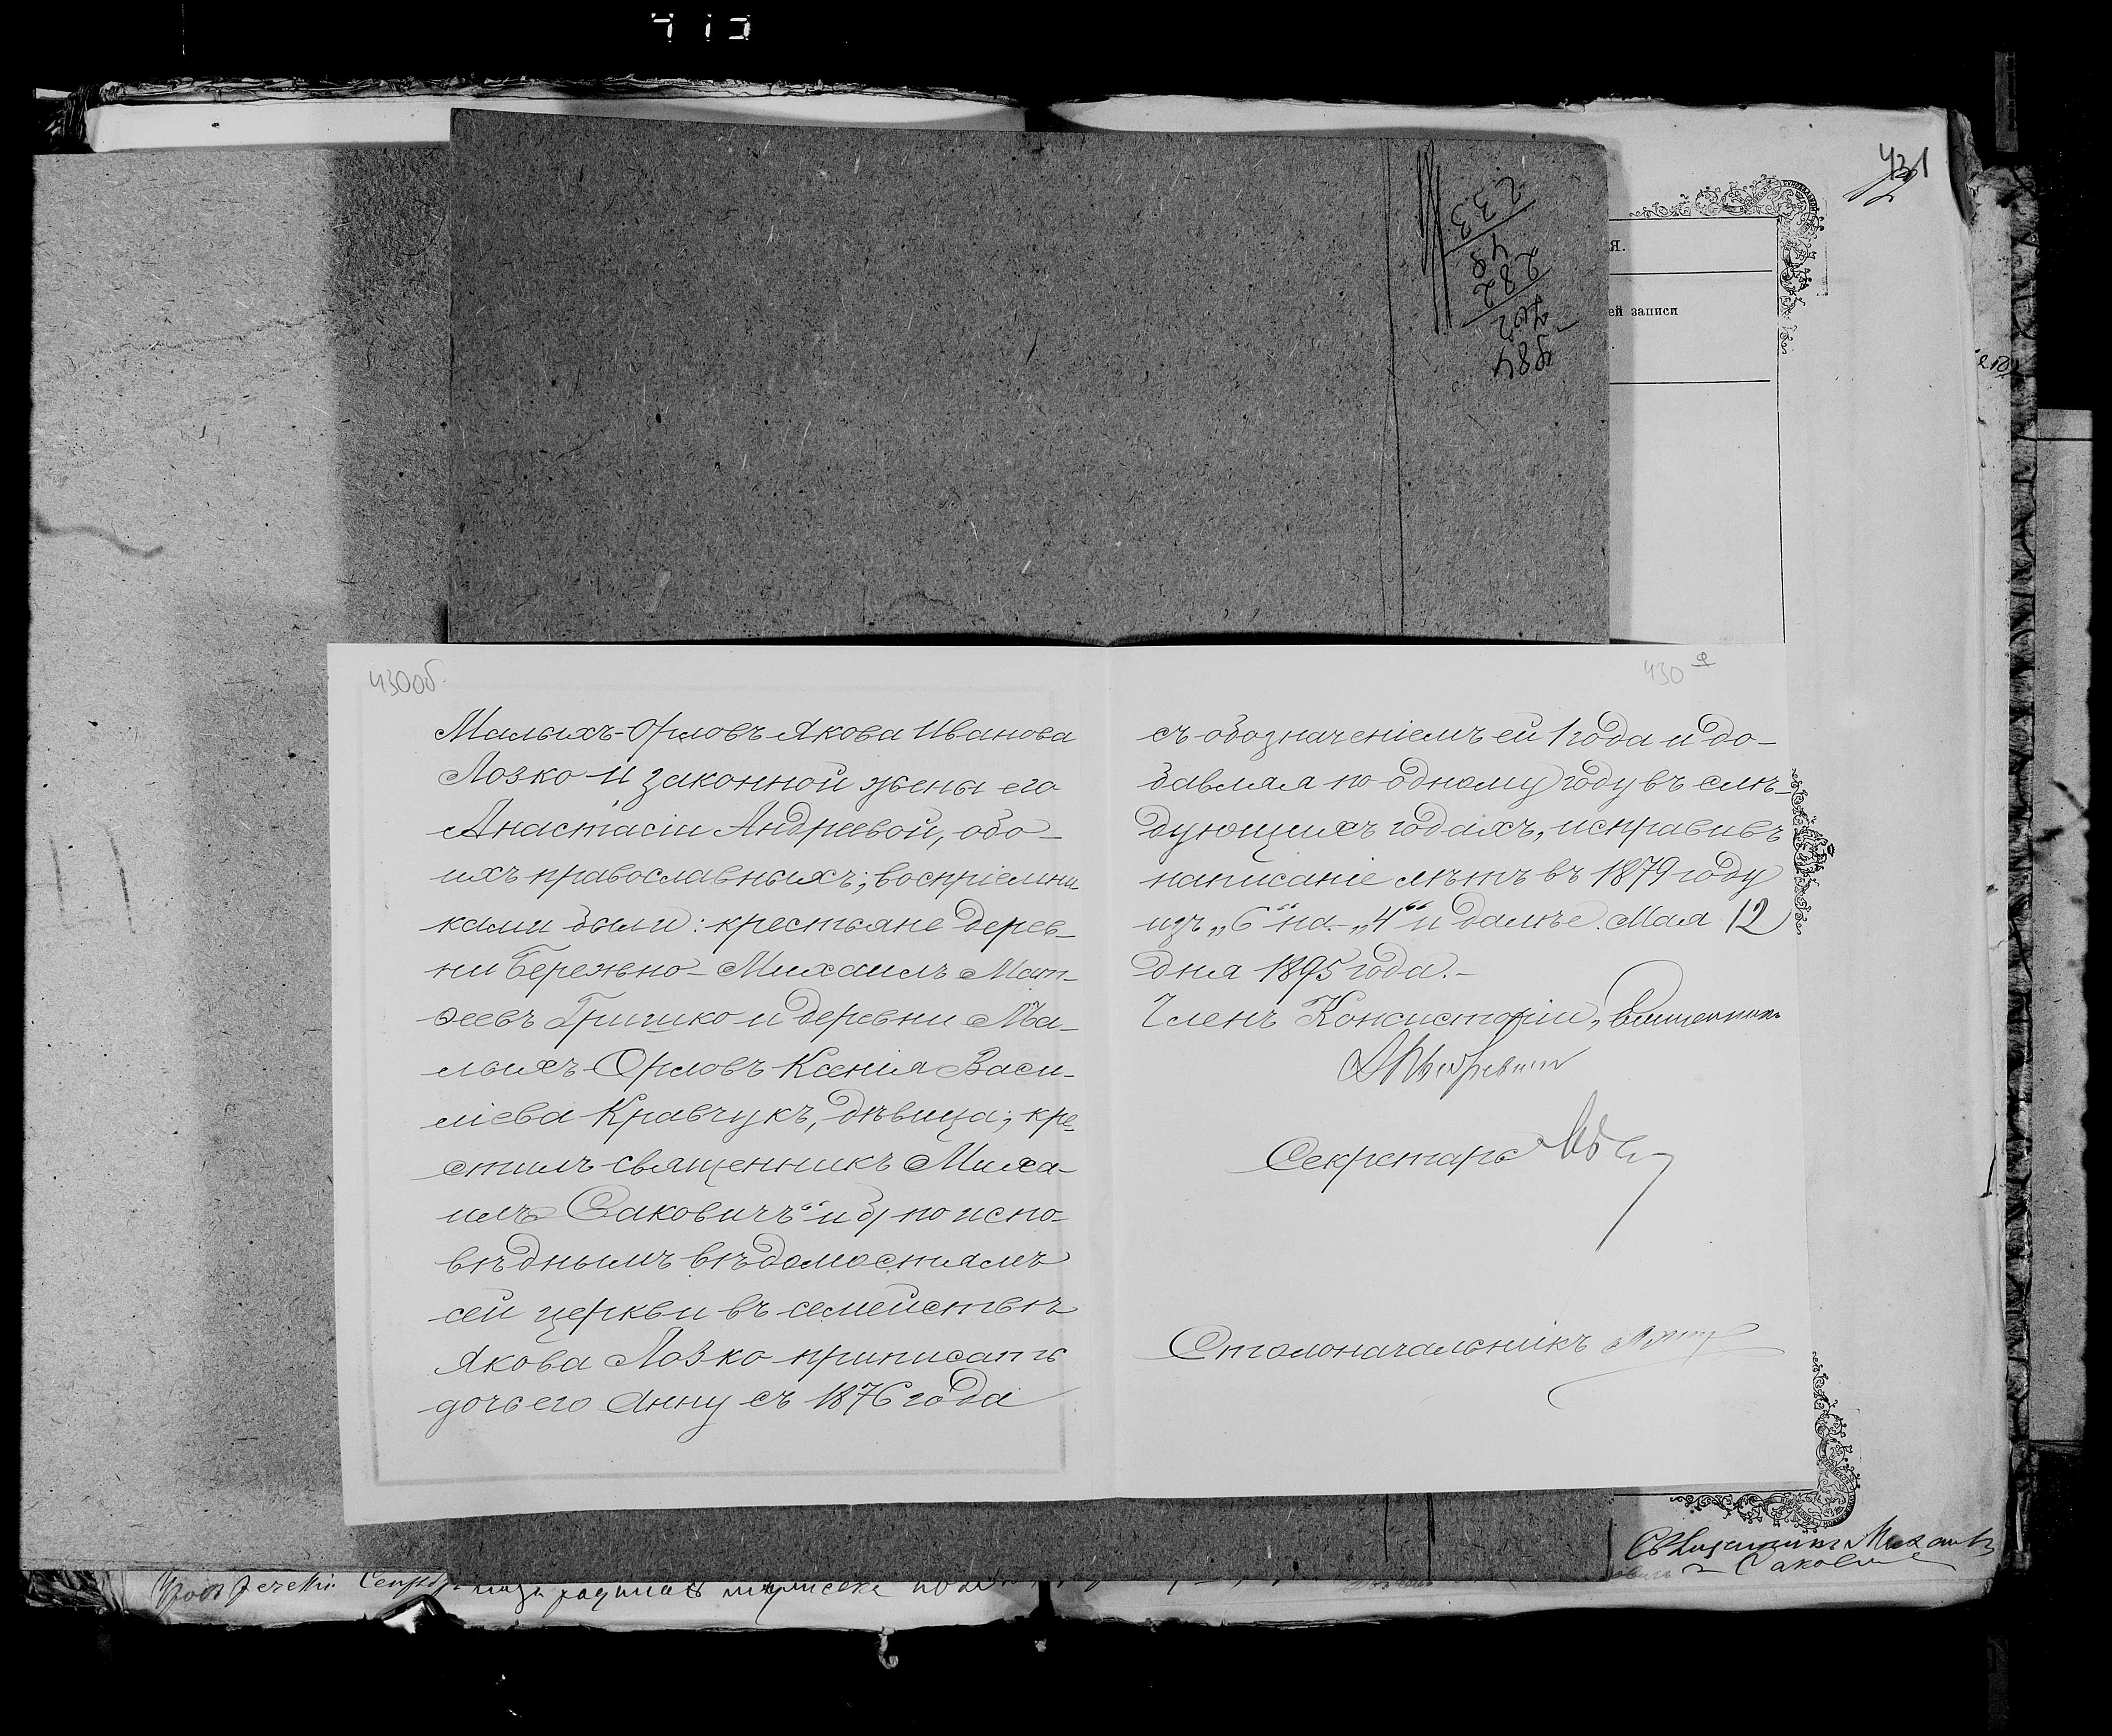 431
233
48
282
202
884
я.
ей записи
430об.
Малыхъ-Орловъ Якова Иванова
Лозко и законной жены его
Анастасіи Андреевой, обо-
ихъ православныхъ; воспріемни-
ками были: крестьяне дерев-
ни Бережно - Михаилъ Мат-
ѳеевъ Гришко и деревни Ма-
лыхъ-Орловъ Ксенія Васи-
ліева Кравчукъ, дѣвица; кре-
стилъ священникъ Миха-
илъ Саковичъ“ и б) по испо-
вѣднымъ вѣдомостямъ
сей церкви въ семействѣ
Якова Лозко приписать
дочь его Анну съ 1876 года
430а
съ обозначеніемъ ей 1 года и до-
бавляя по одному году въ слѣ-
дующихъ годахъ, исправивъ
написаніе лѣтъ въ 1879 году
изъ „6“ на - „4“ и далѣе. Мая 12
дня 1895 года.-
Членъ Консисторіи, Священникъ
Секретарь
Столоначальникъ
Священникъ Михаилъ
Саковичъ